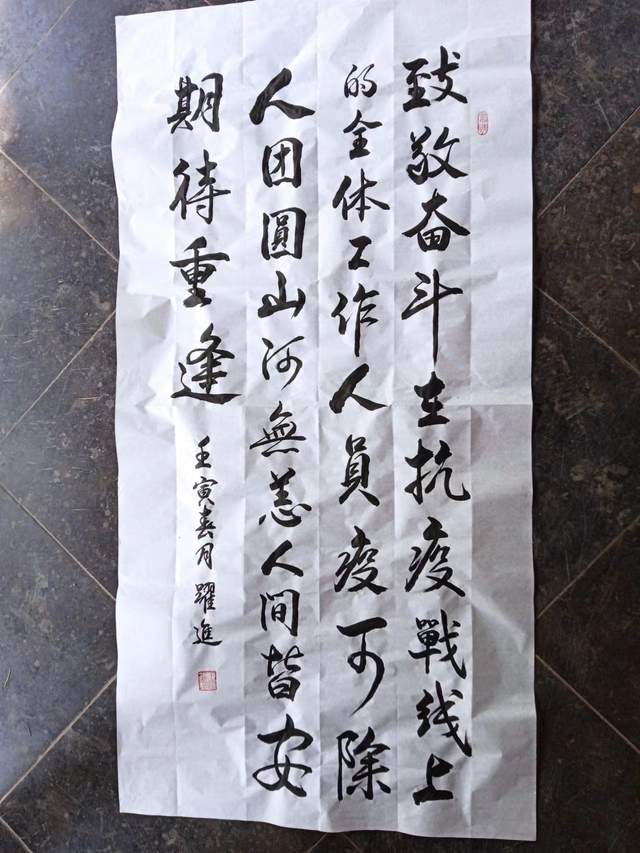 致敬奋斗在抗疫戰线上
的全体工作人員疫可除
人团圓山河無恙人间皆安
期待重逢
壬寅春月躍進